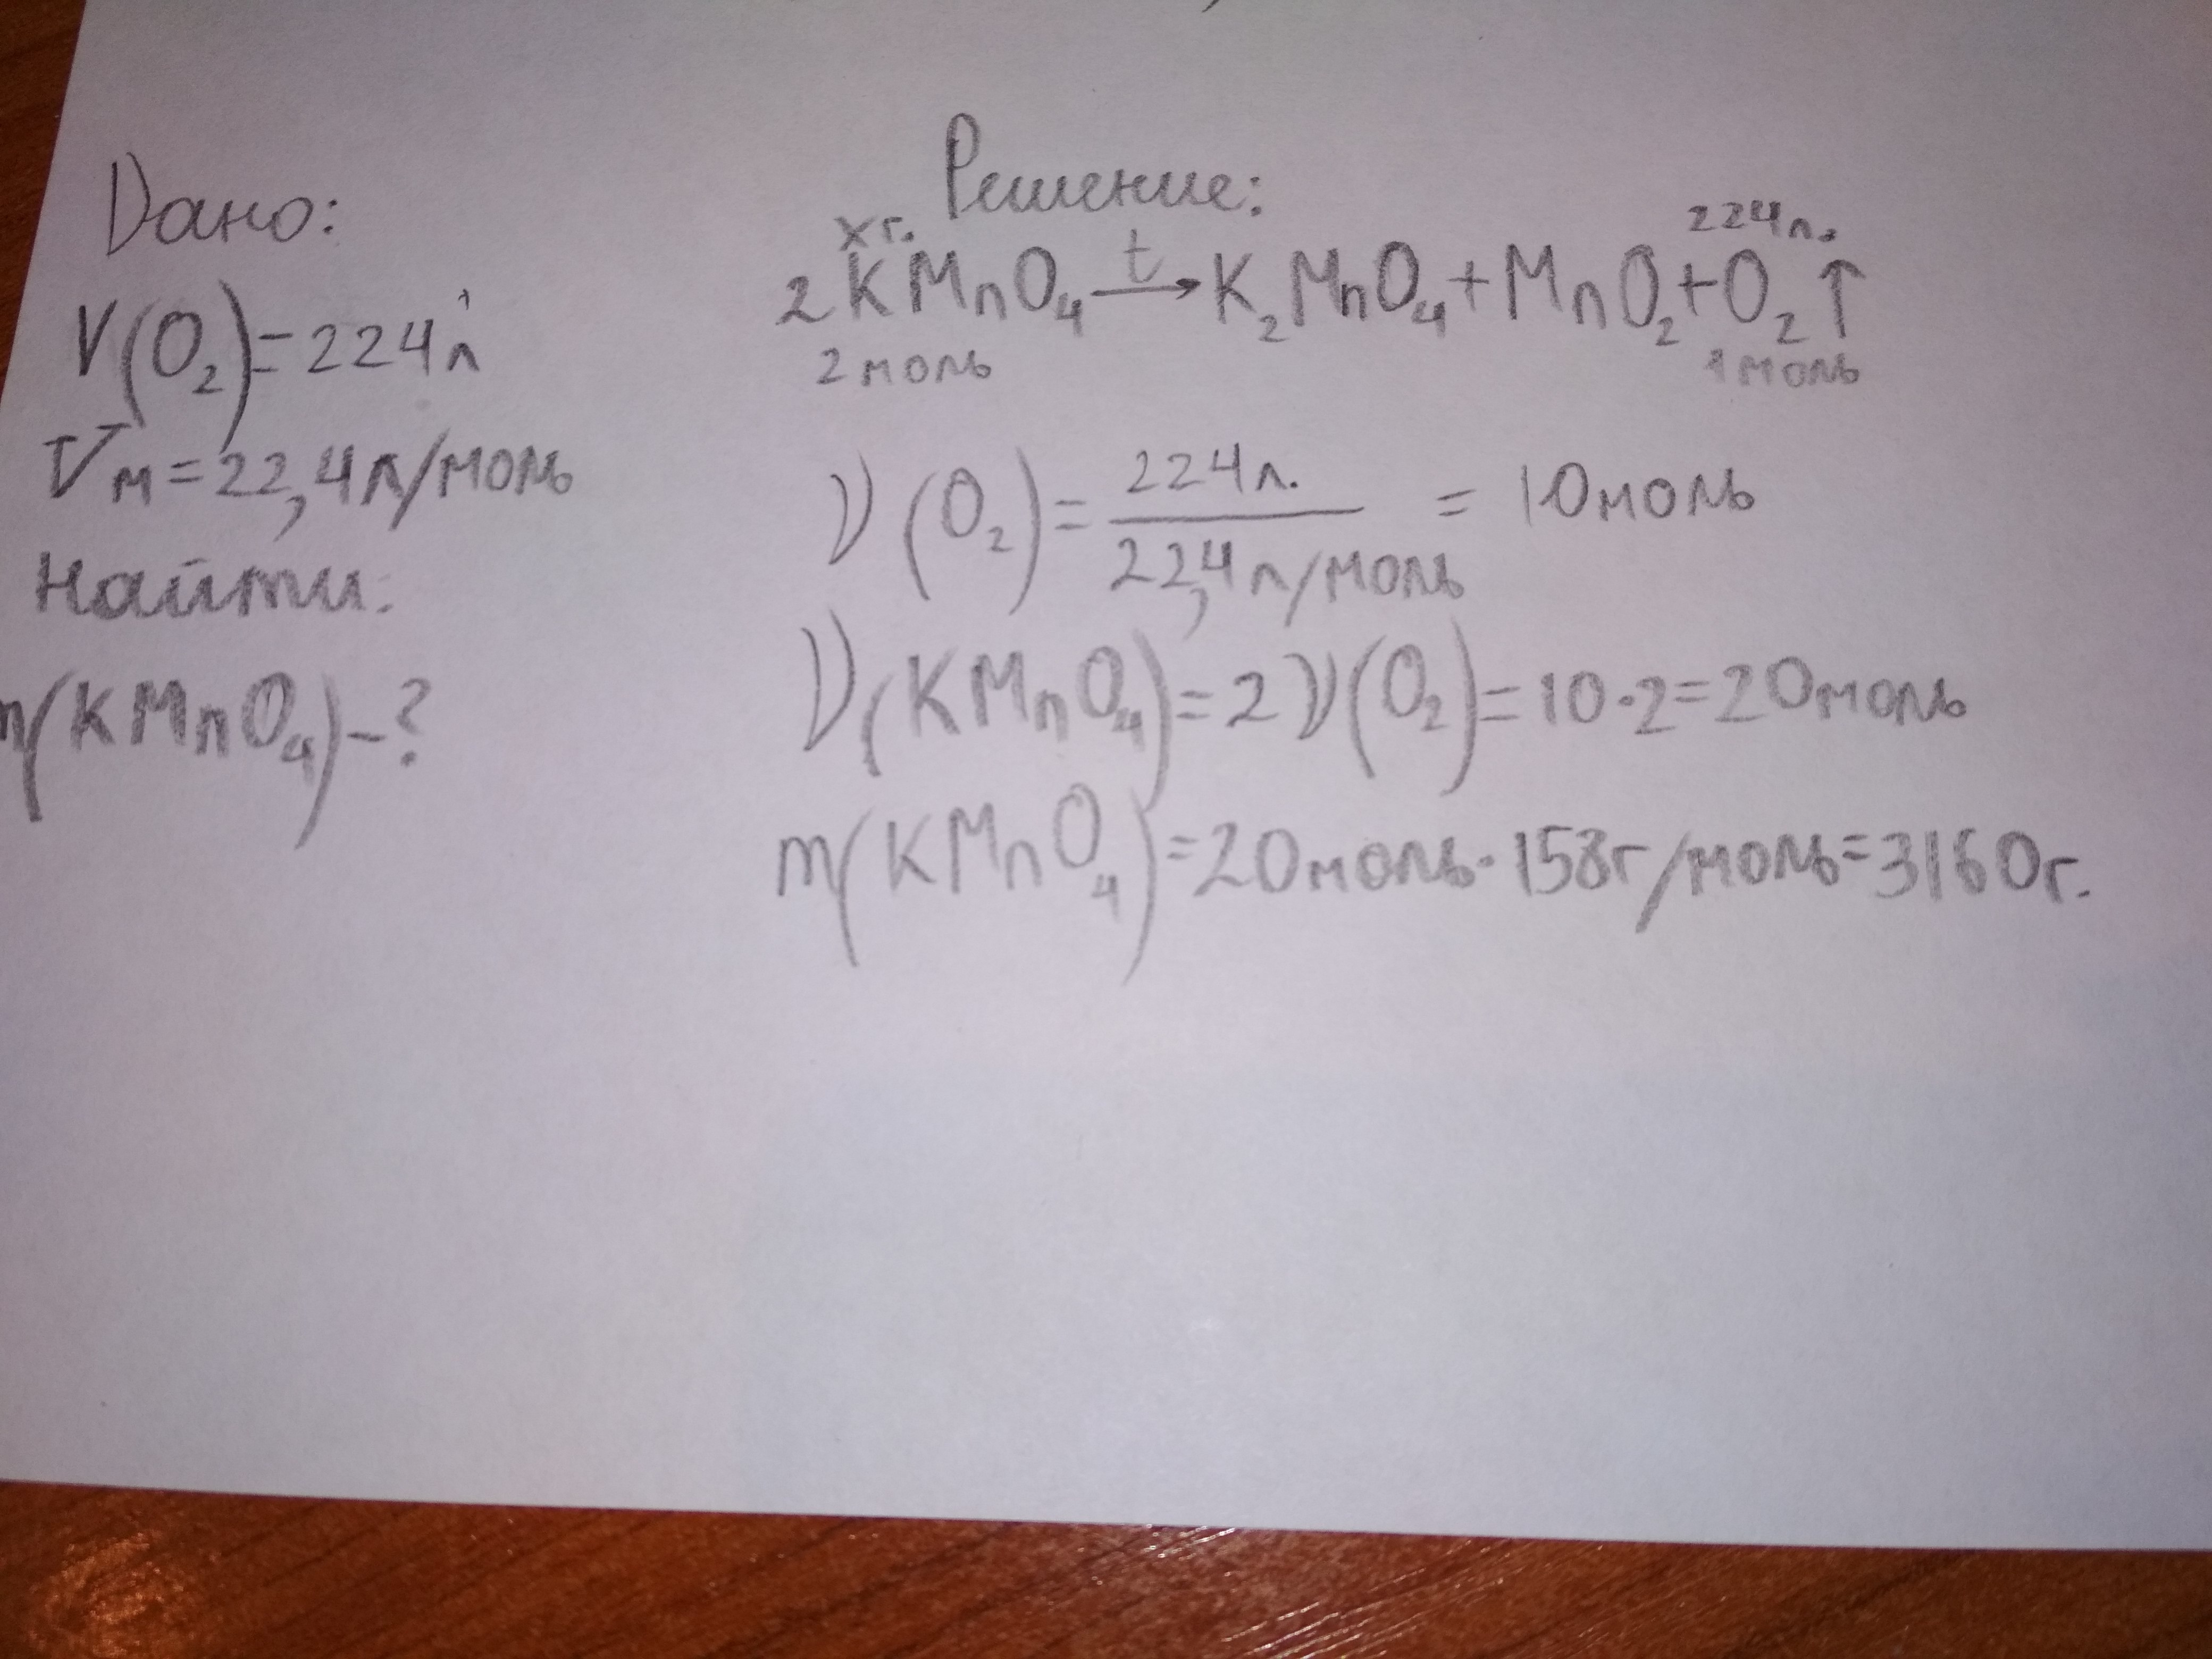 Дано:
V(O₂)=224л
Vм=22,4л/моль
Найти:
m(KMnO₄)-?
Решение:
хг. 224л.
2KMnO₄ t→ K₂MnO₄+MnO₂+O₂↑
2моль 1моль
ν(O₂)= 224л. / 22,4л/моль = 10моль
ν(KMnO₄)=2ν(O₂)=10·2=20моль
m(KMnO₄)=20моль·158г/моль=3160г.